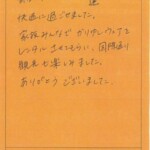 快適に過ごせました。
家族みんなで かりゆしウェアを
レンタル させてもらい、国際通り
観光も楽しみました。
ありがとう ございました。